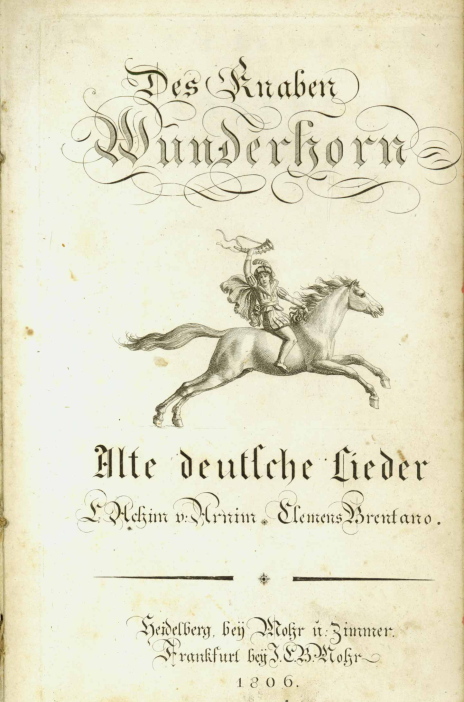 Des Knaben
Wunderhorn
Alte deutsche Lieder
L. Achim v. Arnim. Clemens Brentano.
Heidelberg, bey Mohr u. Zimmer.
Frankfurt bey J.C.B. Mohr
1806.